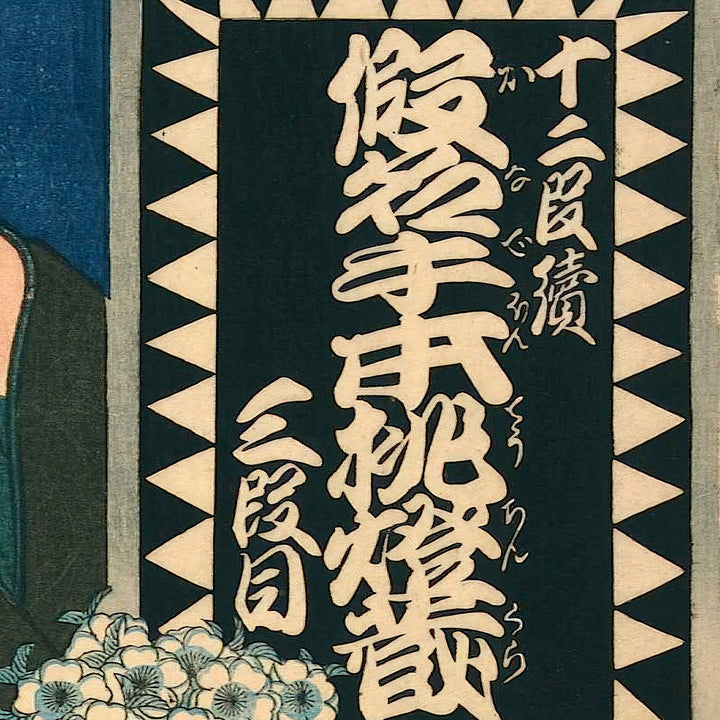 十二段續
かなでほんてうちんくら
假名手本挑燈蔵
三段目